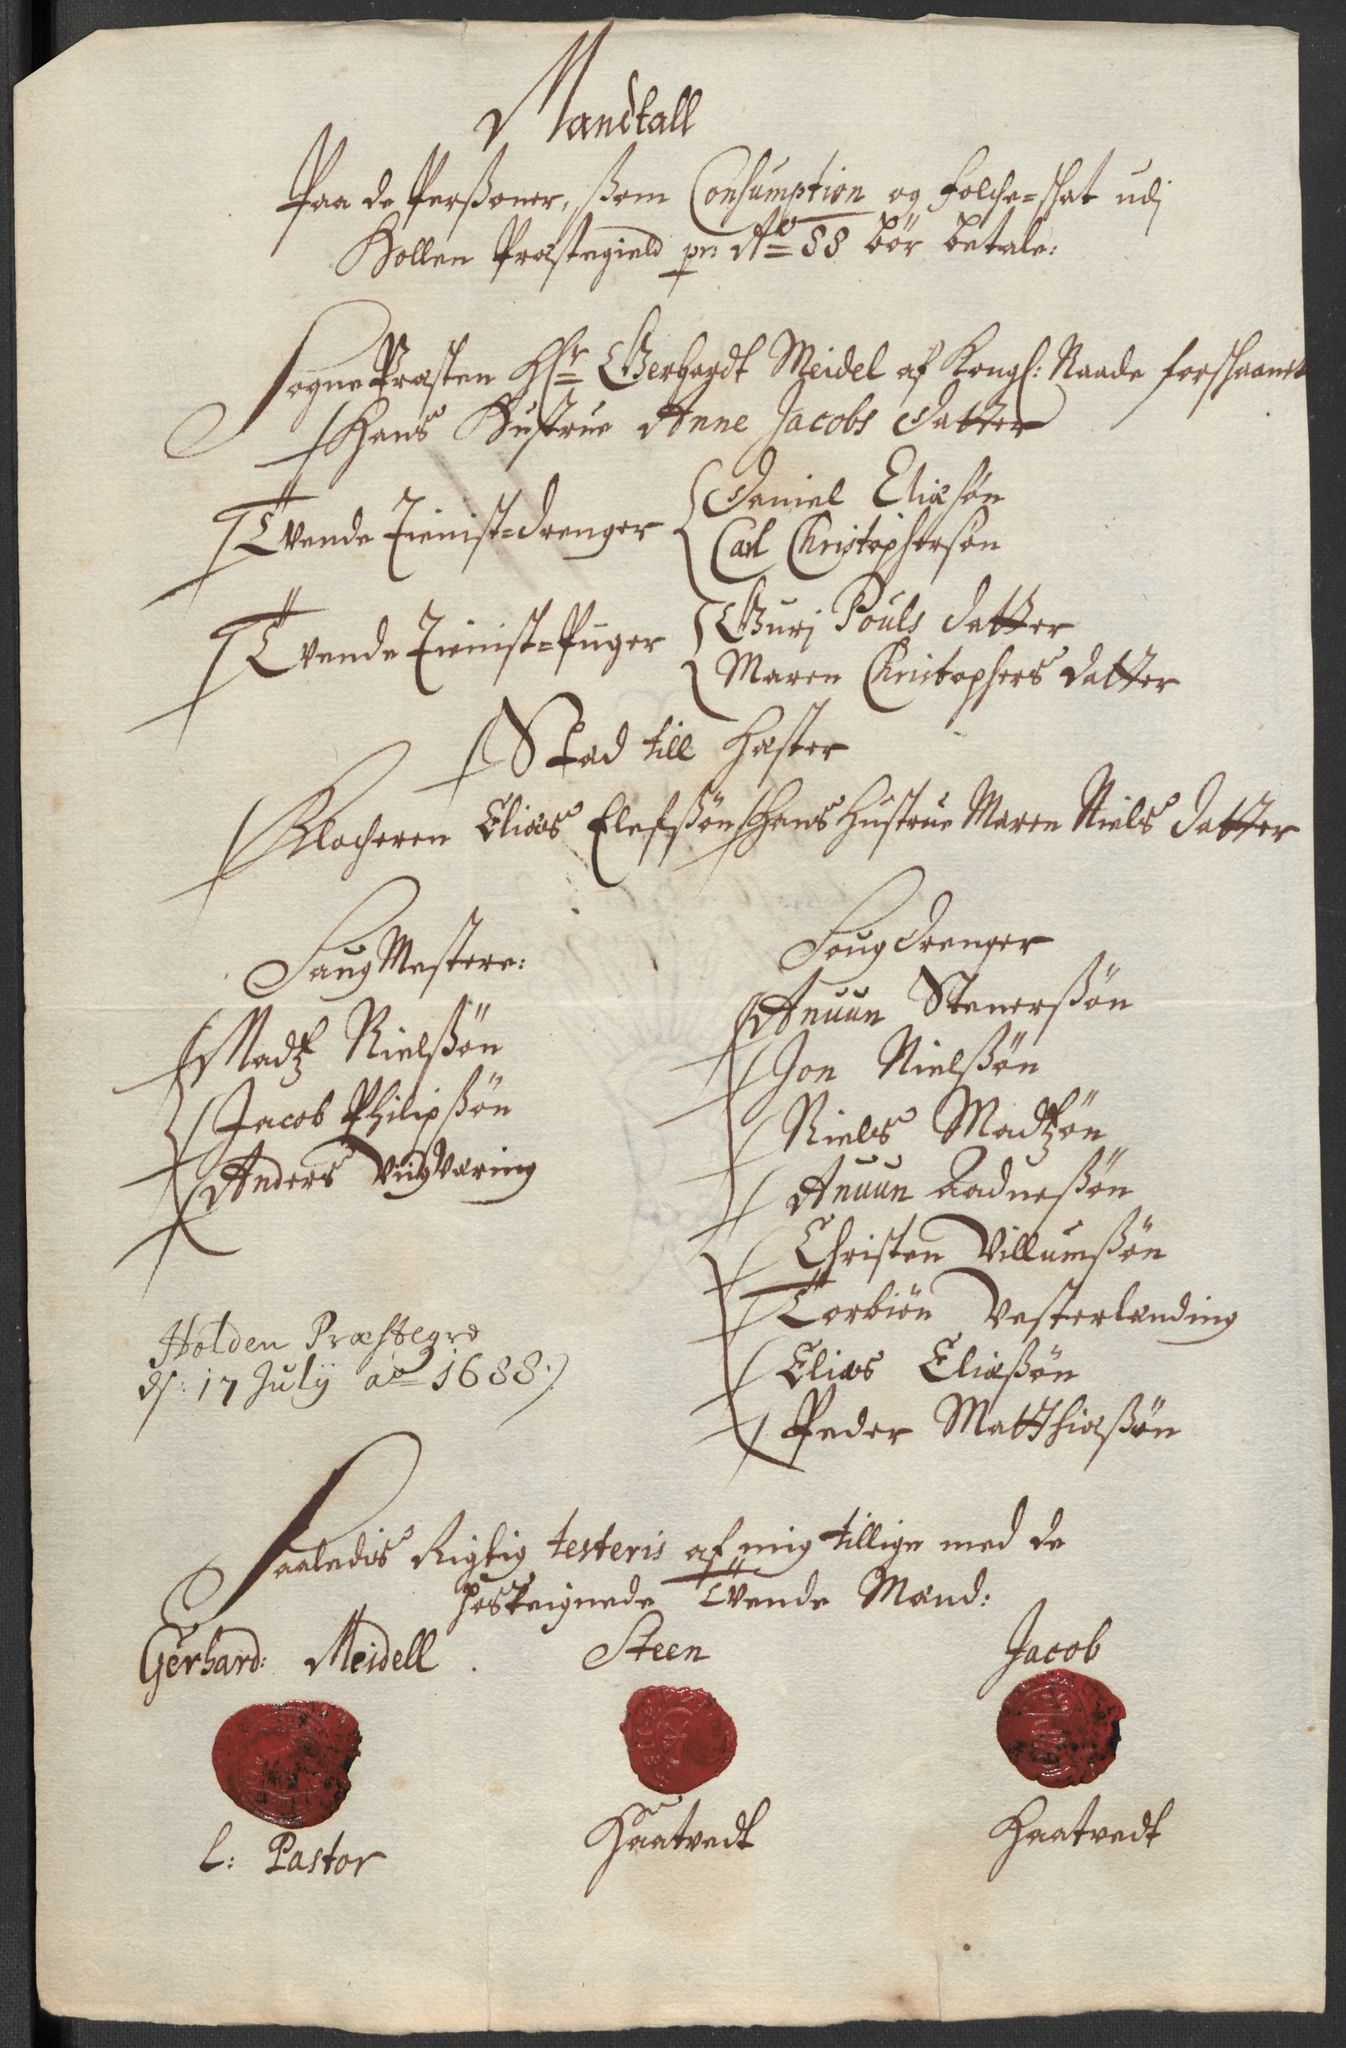 Mandtall
Paa de Perßoner, ßom Consumption og Folche=skat udj
Hollen Præstegield pr: Aº 88 bör betale:
SognePræsten Hr Gerhardt Meidel af Kongl: Naade forskaanet
Hans Hustrue Anne Jacobs Datter
Tvende Tienist=Drenger
Daniel Eliasøn
Carl Christophersøn
Tvende Tienist=Piiger
Gurj Pouls Datter
Maren Christophers Datter
Stad till Hæster
Klocheren Elias Elefsßøn Hans Hustrue Maren Niels Datter
Saug Mestere:
Madtz Nielßøn
Jacob Philipßøn
Anders Viigværing
Soug Drenger
Anuun Stenerßøn
Jon Nielßøn
Niels Madtzøn
Anuun Aadneßøn
Christen Villumßøn
Torbiøn Vesterlænding
Elias Eliaßøn
Peder Matthiaßøn
Holden Præstegrd
d: 17 Julij aº 1688:
Saaledis Rigtig testeris af mig tillige med de
hosteignede Tvende Mænd:
Gerhard: Meidell. Steen Jacob
L: Pastor Haatvedt Haatvedt